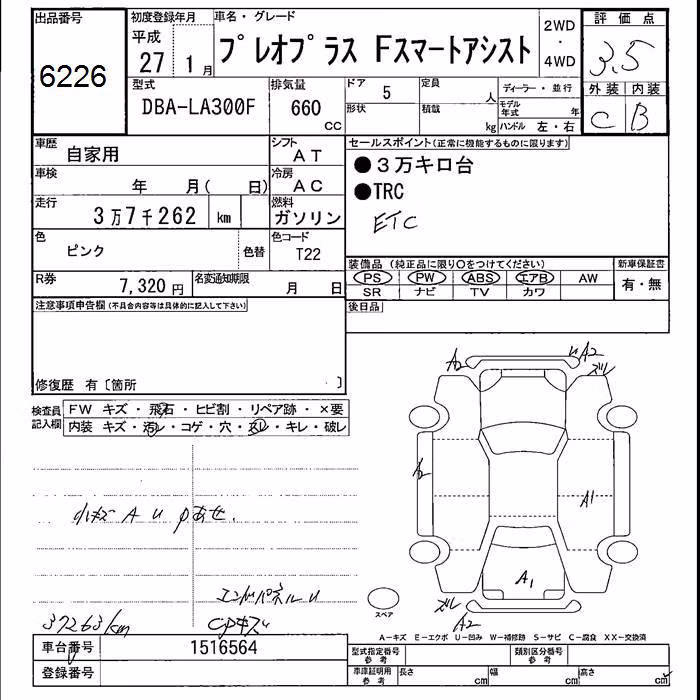 出品番号
6226
初度登録年月
平成
27 1月
車名・グレード
プレオプラス Fスマートアシスト
2WD
・
4WD
評価点
3.5
外装 内装
C B
型式
DBA-LA300F
排気量
660
cc
ドア
5
形状
定員
人
積載
kg
ディーラー・並行
モデル年式 年
ハンドル 左・右
車歴
自家用
シフト
AT
車検
年 月( 日)
冷房
AC
走行
3万7千262 km
燃料
ガソリン
色
ピンク
色替
色コード
T22
R券
7,320円
名変通知期限
月 日
セールスポイント(正常に機能するものに限ります)
●3万キロ台
●TRC
ETC
装備品(純正品に限り〇をつけてください)
PS PW ABS エアB AW
SR ナビ TV カワ
新車保証書
有・無
後日品
注意事項申告欄(不具合内容等は具体的に記入して下さい)
修復歴 有〔箇所 〕
検査員記入欄
FW キズ・飛石・ヒビ割・リペア跡・×要
内装 キズ・汚レ・コゲ・穴・スレ・キレ・破レ
小キズ A U
エンドパネルU
37263km
A2
U A2
ズレ
A2
A1
A1
ズレ
A2
スペア
A-キズ E-エクボ U-凹み W-補修跡 S-サビ C-腐食 XX-交換済
車台番号
1516564
登録番号
型式指定番号
参考
類別区分番号
参考
車庫証明用
参考
長さ cm
幅 cm
高さ cm